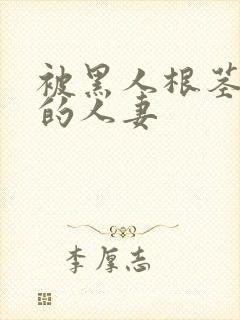 被黑人根茎
的人妻
李厚志